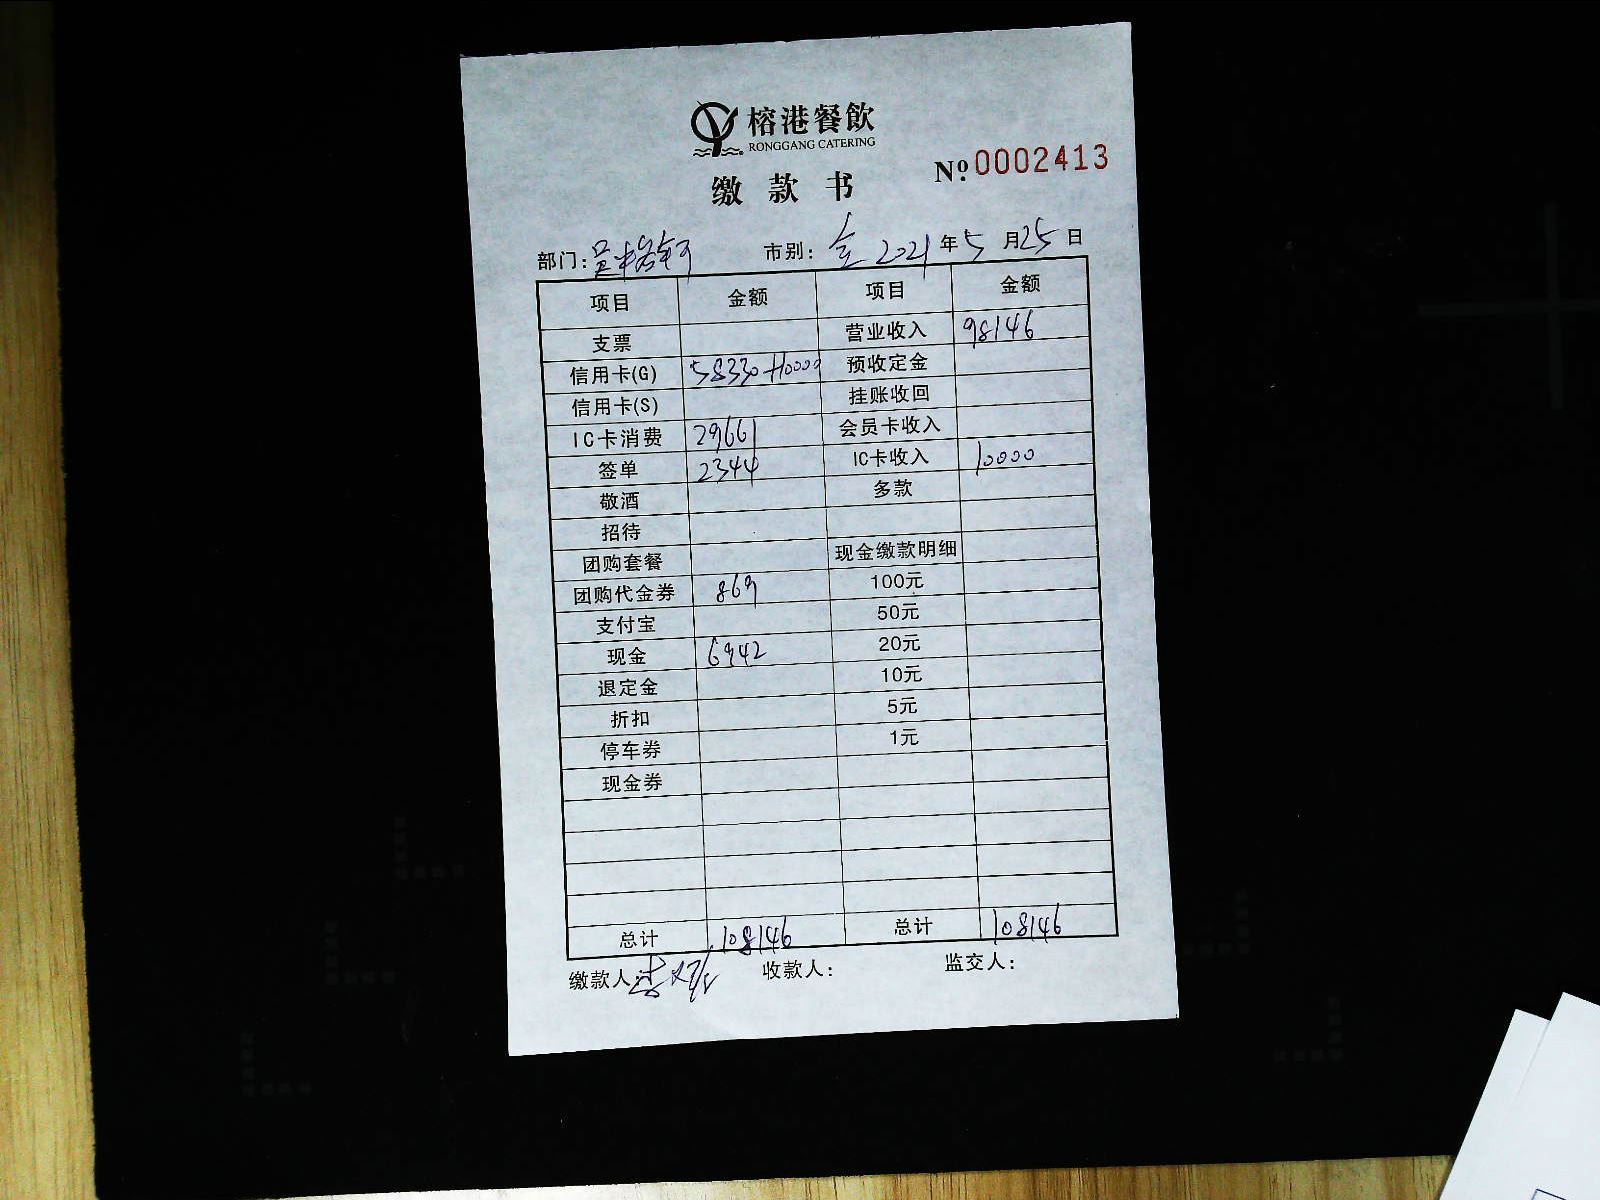 榕港餐飲
RONGGANG CATERING
缴款书 Nº 0002413
部门: 市别: 全 2021年5月25日
项目 金额 项目 金额
支票 营业收入 98146
信用卡(G) 58330+10000 预收定金
信用卡(S) 挂账收回
IC卡消费 29661 会员卡收入
签单 2344 IC卡收入 10000
敬酒 多款
招待
团购套餐 现金缴款明细
团购代金券 869 100元
支付宝 50元
现金 6942 20元
退定金 10元
折扣 5元
停车券 1元
现金券
总计 108146 总计 108146
缴款人: 收款人: 监交人: